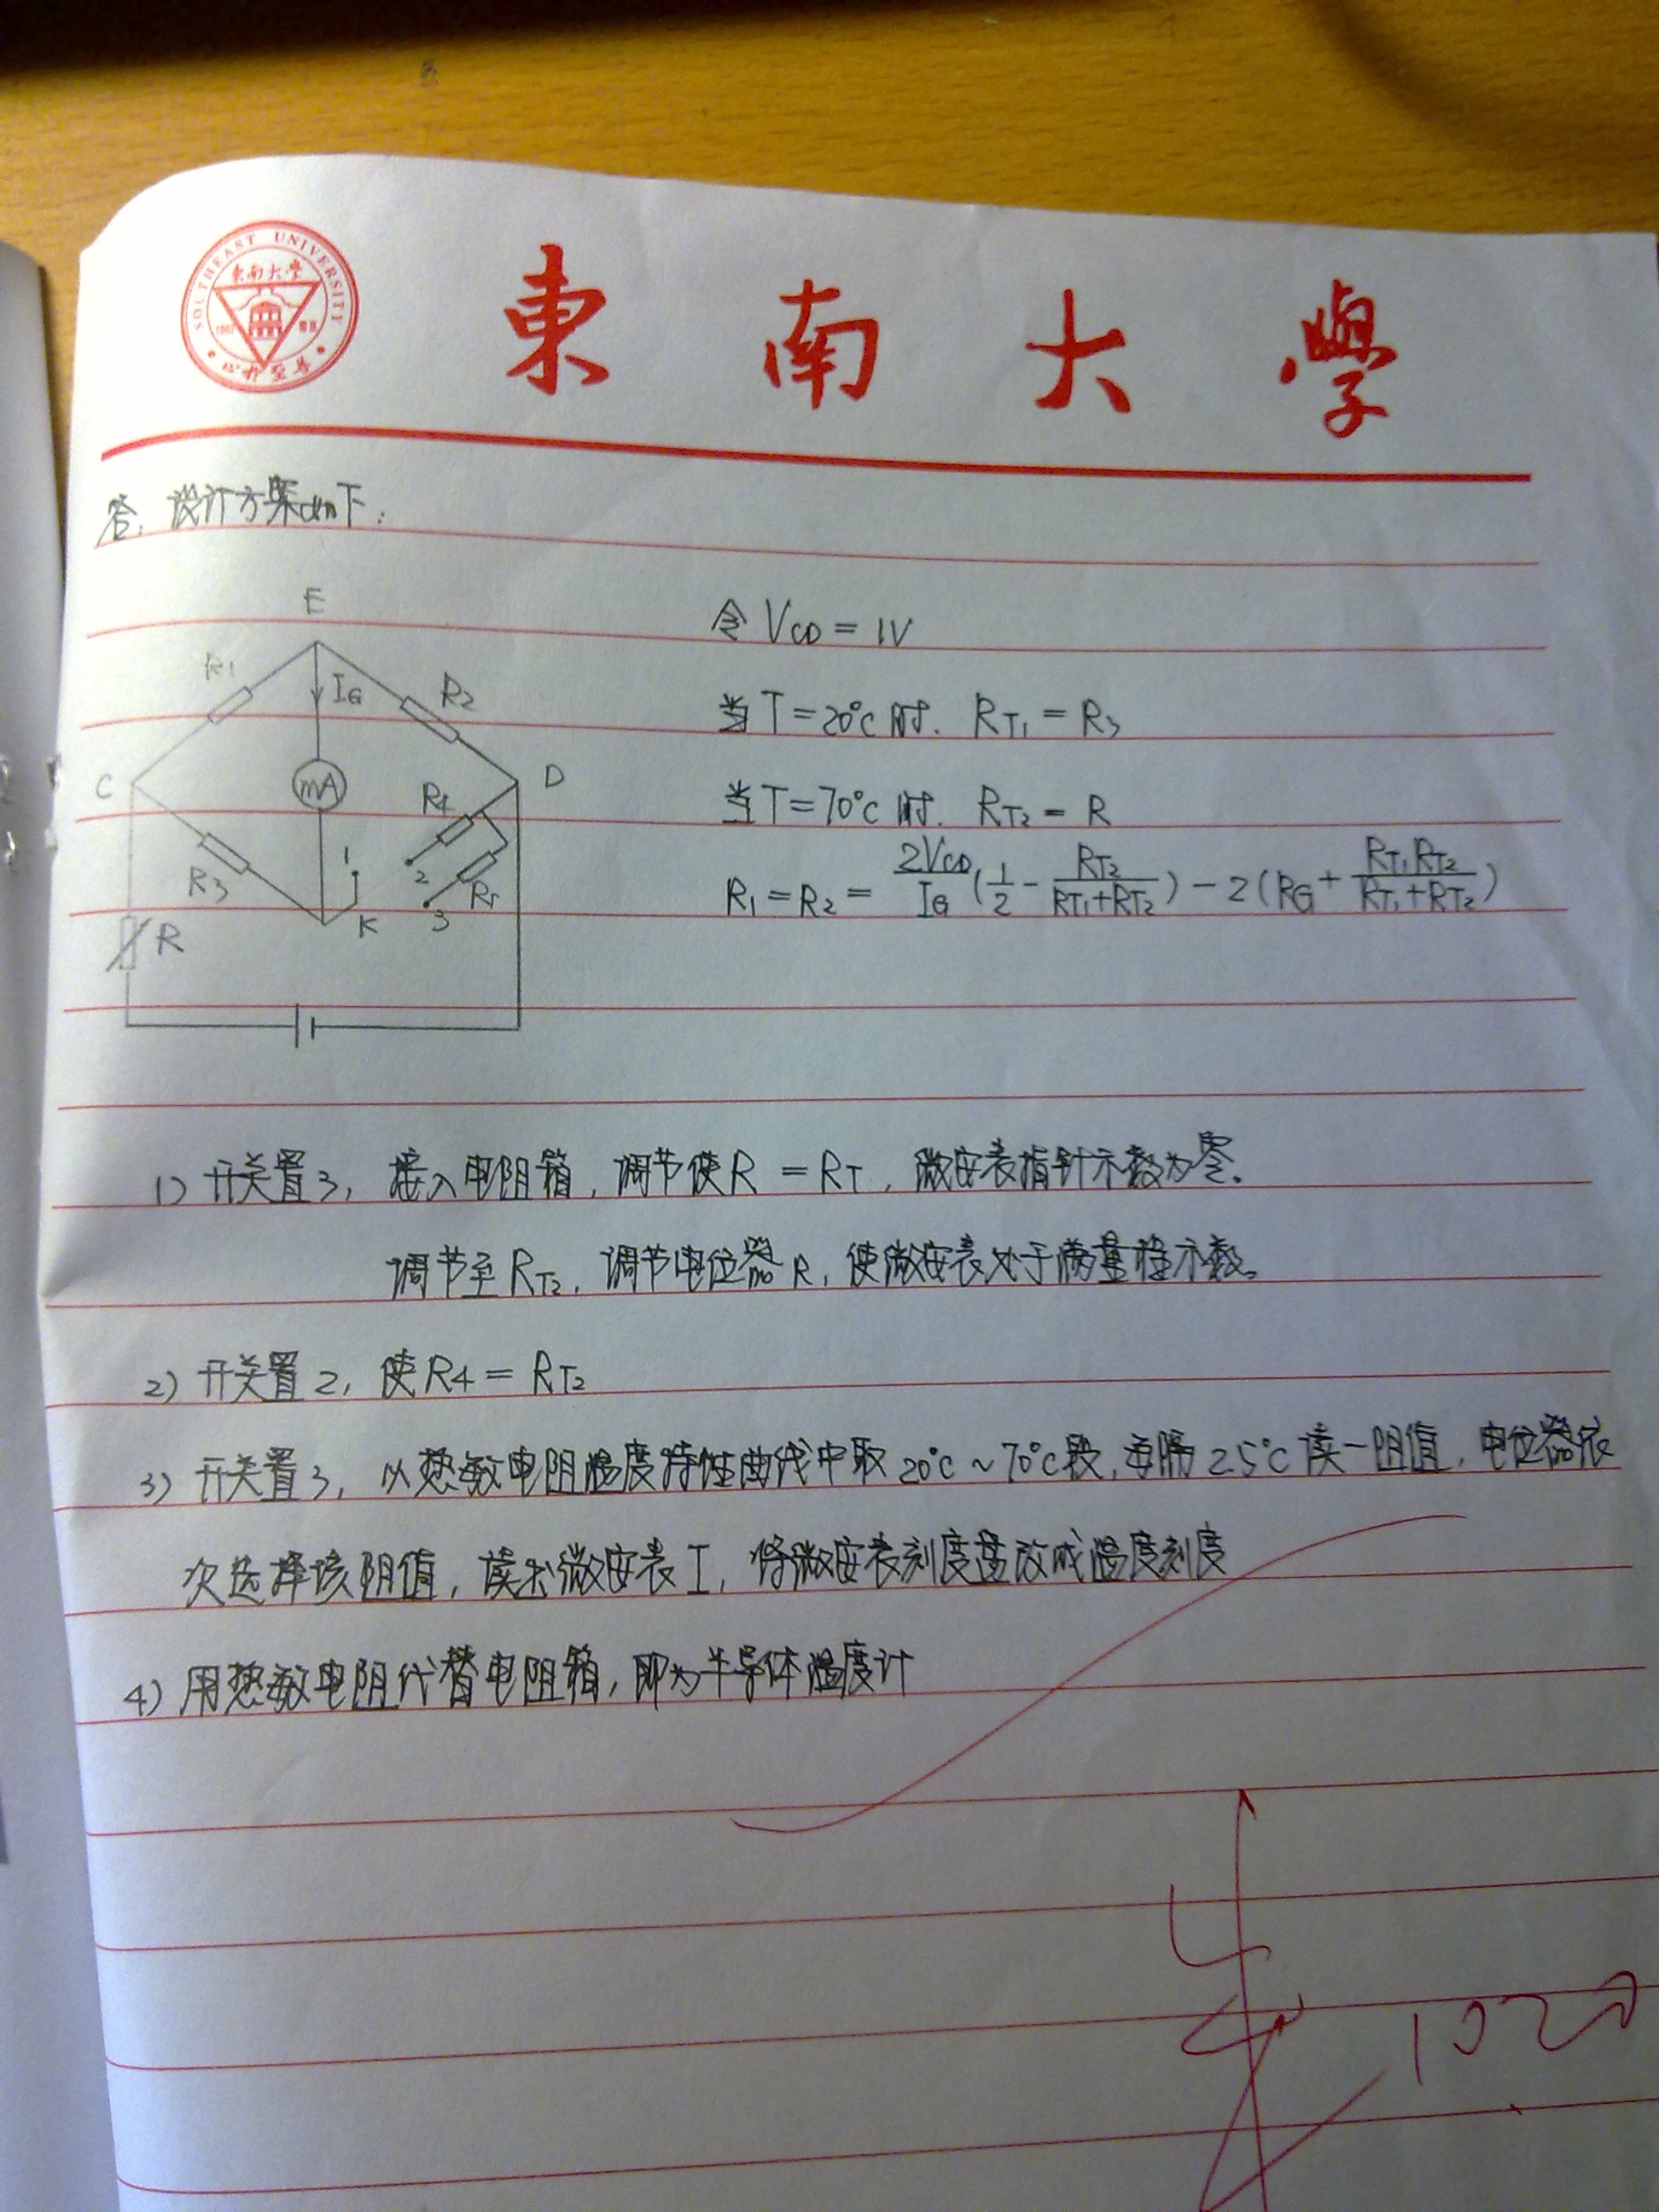 SOUTHEAST UNIVERSITY
東南大學
1902 南京
止於至善
東南大學
答:设计方案如下:
E
R1
IG
R2
C
mA
D
R4
R3
1
2
R5
3
K
R
令 VCD = 1V
当T=20°C时. RT1 = R3
当T=70°C时. RT2 = R
R1 = R2 = 2VCD/IG (1/2 - RT2/(RT1+RT2)) - 2(RG + RT1RT2/(RT1+RT2))
1) 开关置3, 接入电阻箱, 调节使R = RT, 微安表指针示数为零。
调节至RT2, 调节电位器R, 使微安表处于满量程示数。
2) 开关置2, 使R4 = RT2
3) 开关置3, 从热敏电阻温度特性曲线中取20°C~70°C段, 每隔2.5°C读一阻值, 电位器依
次选择该阻值, 读出微安表I, 将微安表刻度盘改成温度刻度
4) 用热敏电阻代替电阻箱, 即为半导体温度计